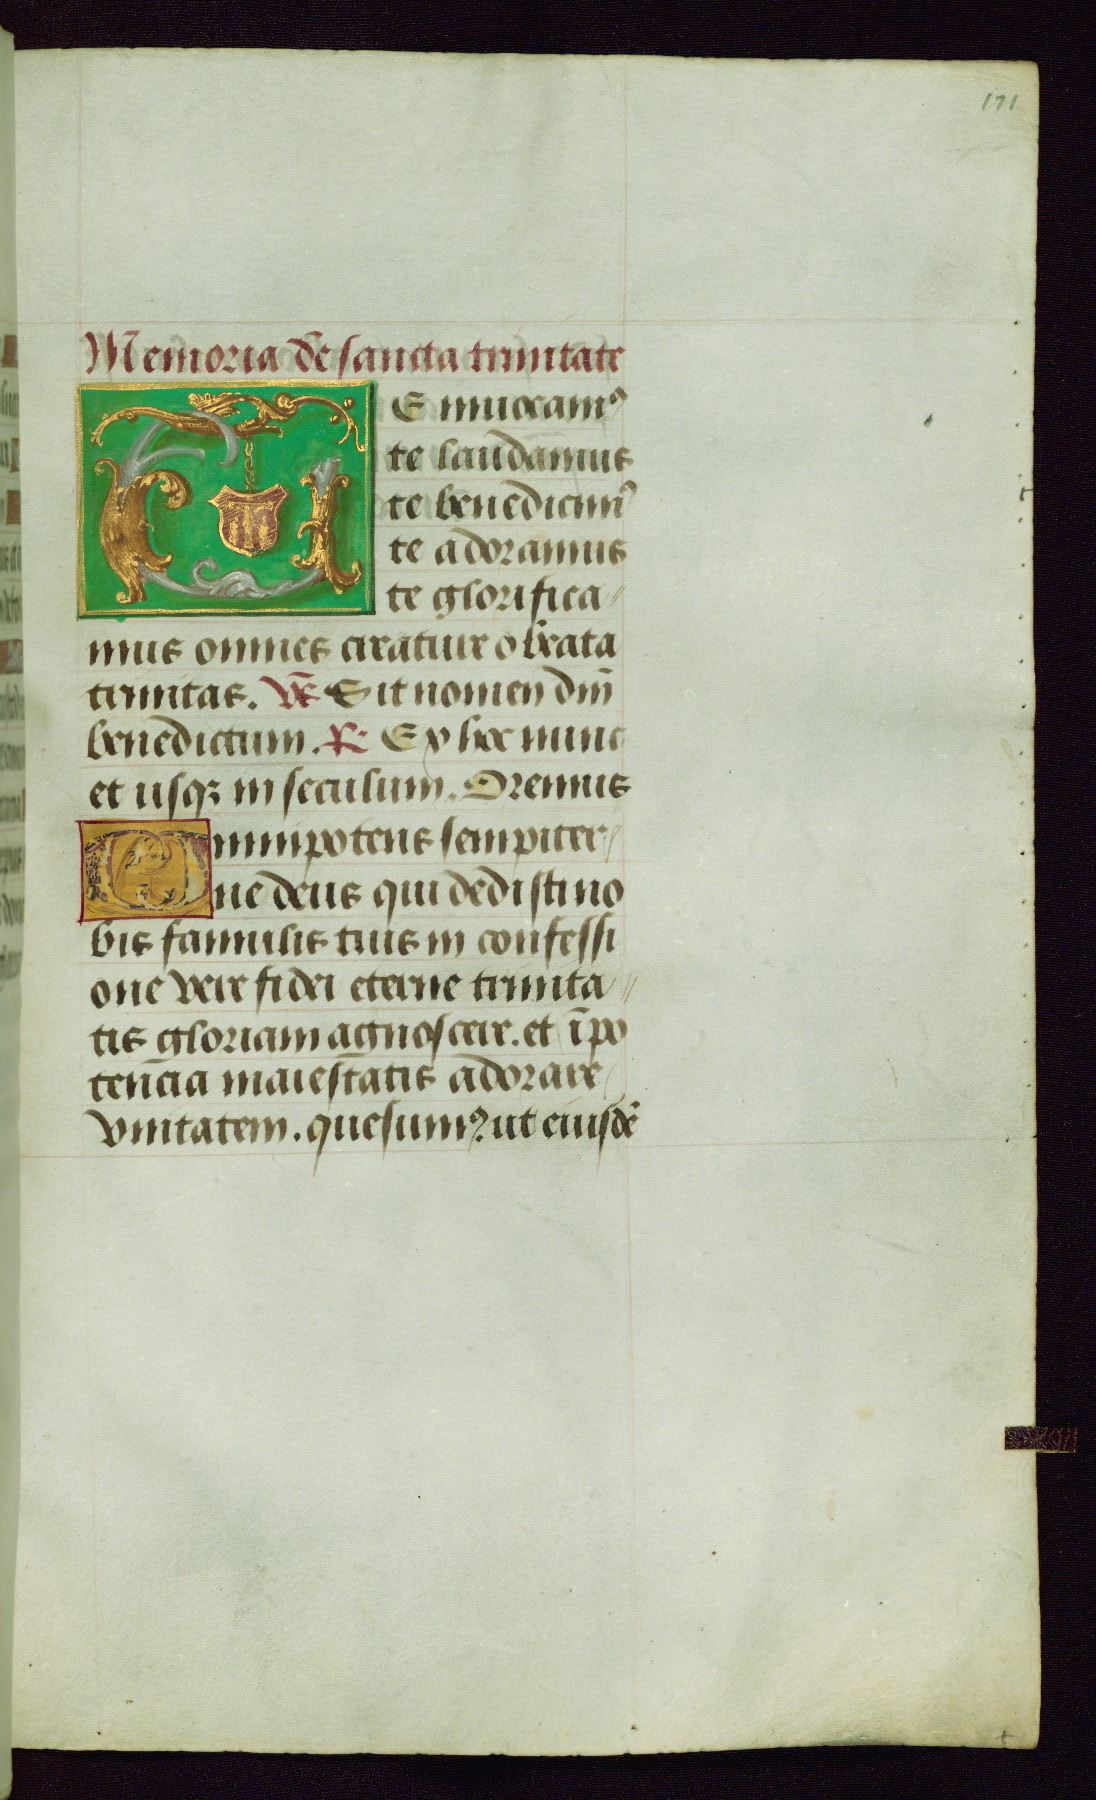 171
Memoria de sancta trinitate
TE inuocam⁹
te laudamus
te benedicim⁹
te adoramus
te glorifica
mus omnes creature o beata
trinitas. V̄ Sit nomen dn̄i
benedictum. R̄ Ex hoc nunc
et usqꝫ in seculum. Oremus
Omnipotens sempiter
ne deus qui dedisti no
bis famulis tuis in confessi
one vere fidei eterne trinita
tis gloriam agnoscere. et ī po
ten̄cia maiestatis adorare
vnitatem. quesum⁹. ut eiusdē